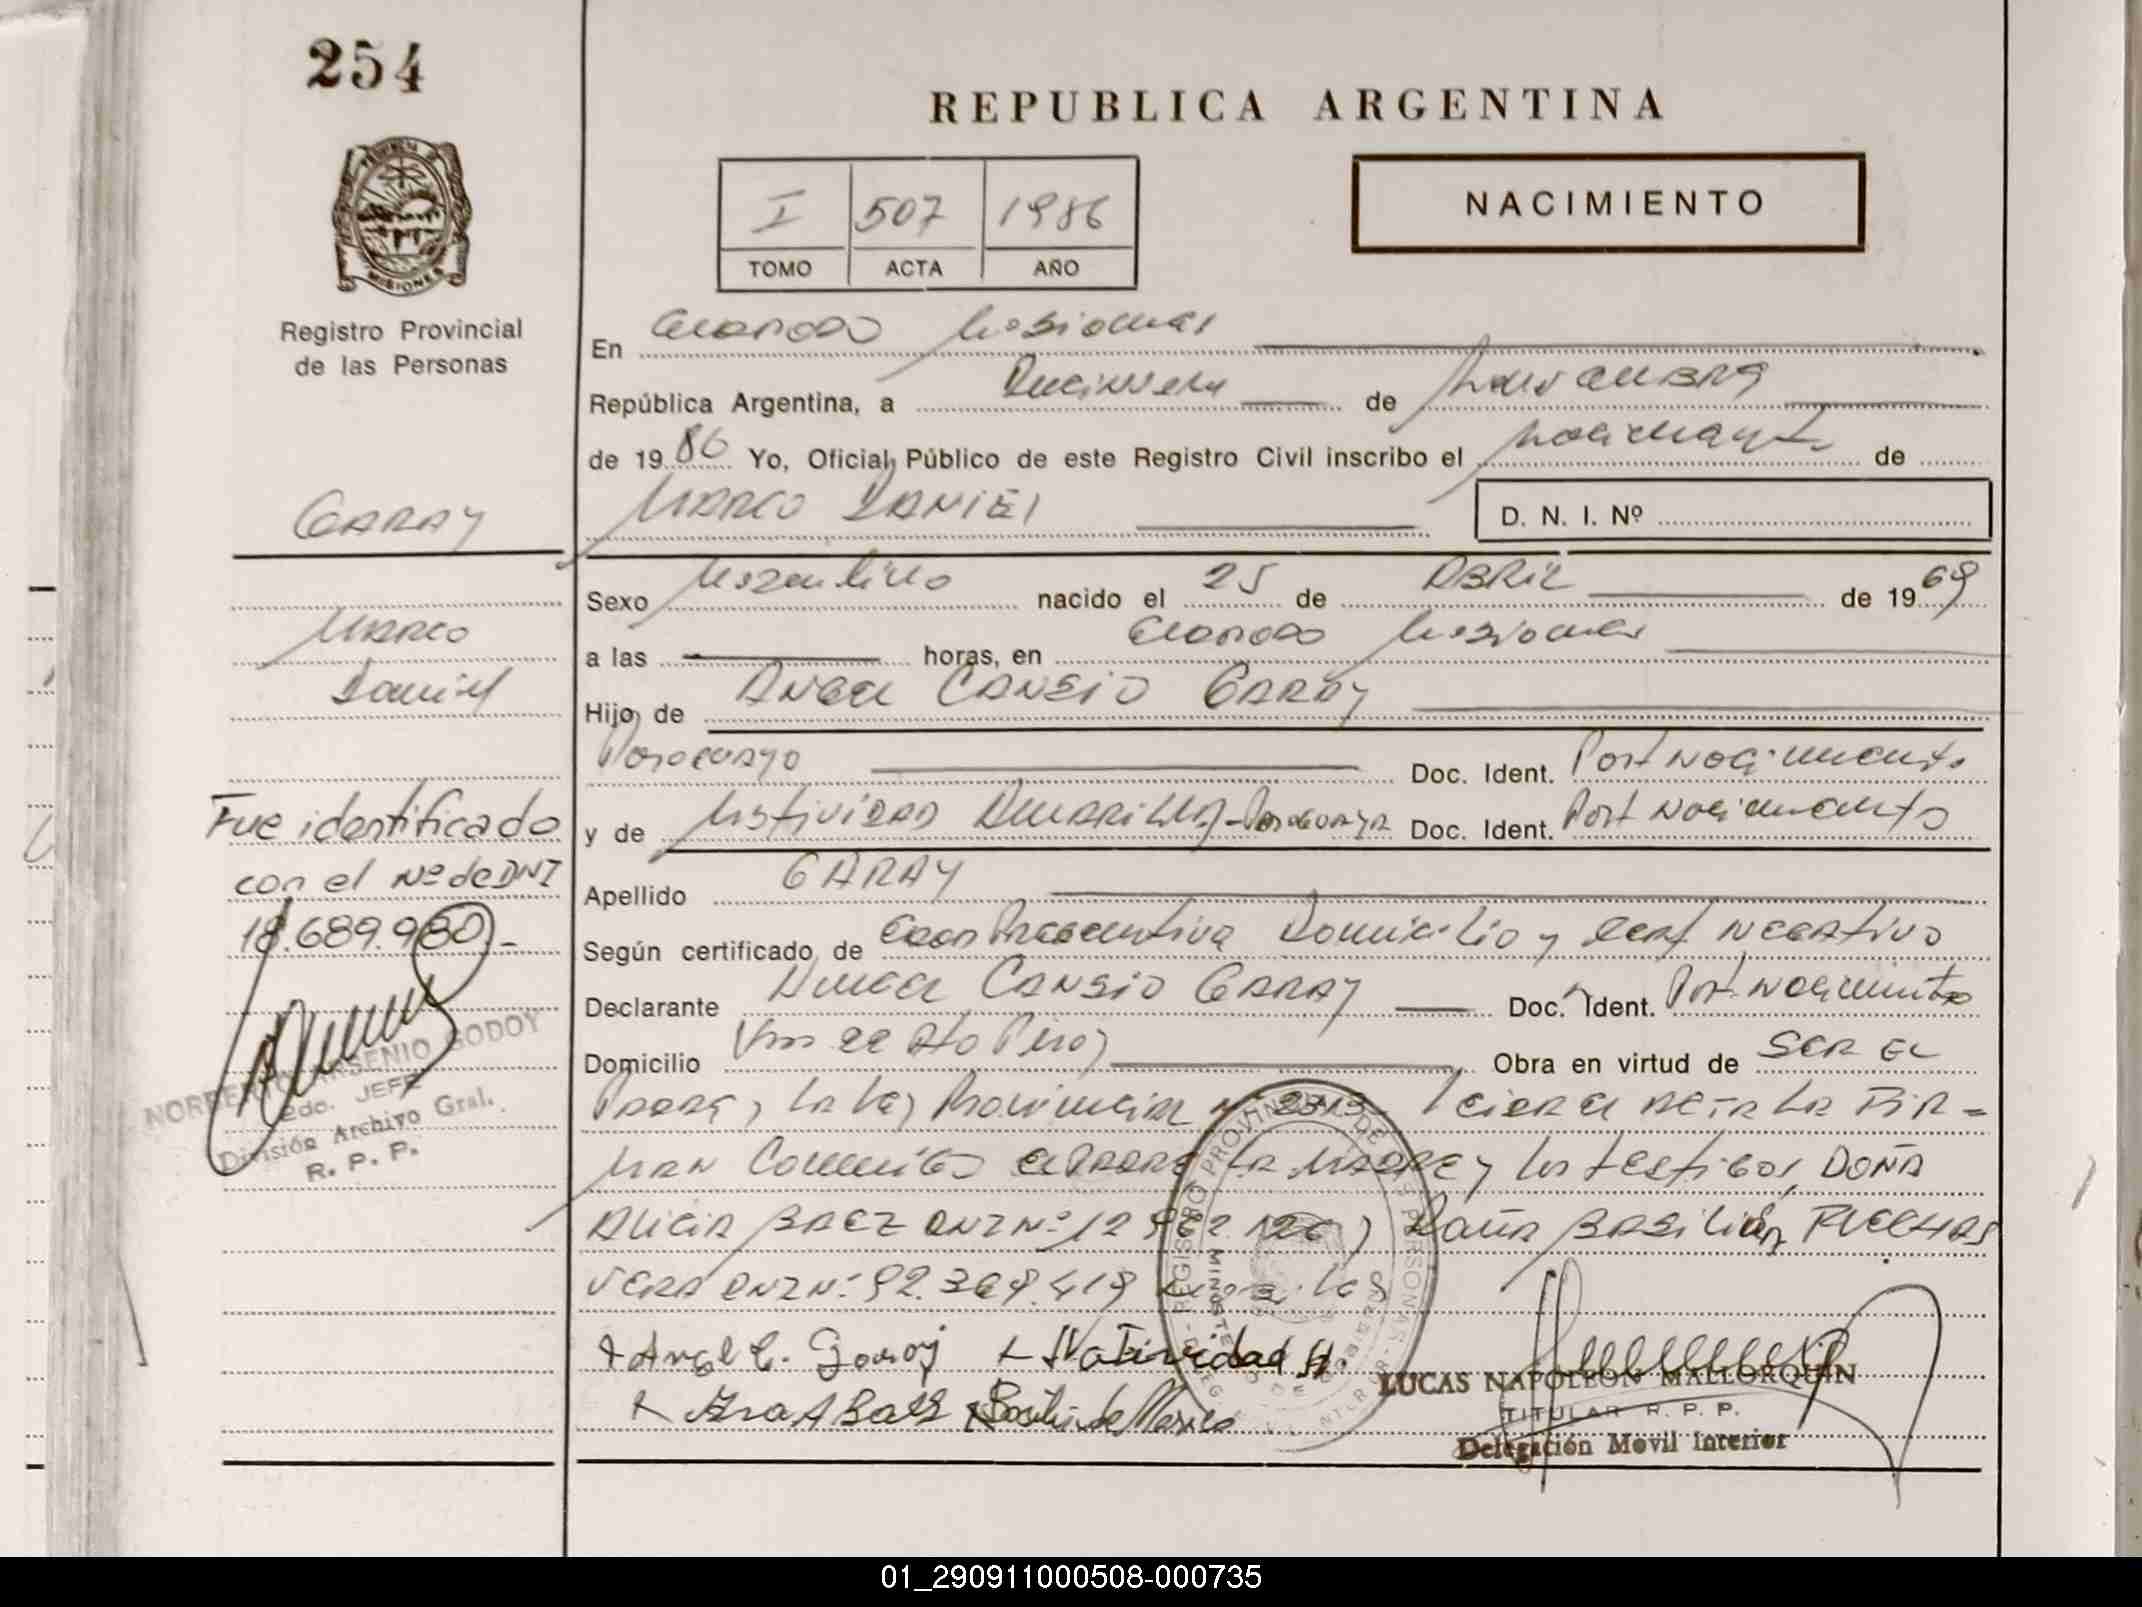 254
REPUBLICA ARGENTINA
NACIMIENTO
I 507 1986
TOMO ACTA AÑO
PROVINCIA DE MISIONES
Registro Provincial
de las Personas
En Eldorado Misiones
República Argentina, a Diecinueve de Noviembre
de 1986 Yo, Oficial Público de este Registro Civil inscribo el Nacimiento de
MARCO DANIEL
D. N. I. Nº
GARAY
Marco
Daniel
Sexo Masculino nacido el 25 de ABRIL de 1969
a las horas, en Eldorado Misiones
Hijo de ANGEL CANSIO GARAY
Paraguayo Doc. Ident. Post Nacimiento
y de Natividad Amarilla - Paraguaya Doc. Ident. Post Nacimiento
Fue identificado
con el Nº de DNI
18.689.980.-
Apellido GARAY
Según certificado de Domicilio y Cert Negativo
Declarante Angel CANSIO GARAY Doc. Ident. Post Nacimiento
Domicilio Obra en virtud de SER EL
Padre, La Ley Provincial Nº 2313 Leida el acta La FIR-
MAN Conmigo el PADRE LA MADRE y los testigos, DOÑA
ALICIA BAEZ DNI Nº 12 y DOÑA BASILIA
VERA DNI Nº 92.369.419
Angel C. Garay Natividad A.
NORBERTO ARSENIO GODOY
2do. JEFE
División Archivo Gral.
R. P. P.
REGISTRO PROVINCIAL DE LAS PERSONAS
LUCAS NAPOLEON MALLORQUIN
TITULAR R. P. P.
Delegación Movil Interior
01_290911000508-000735